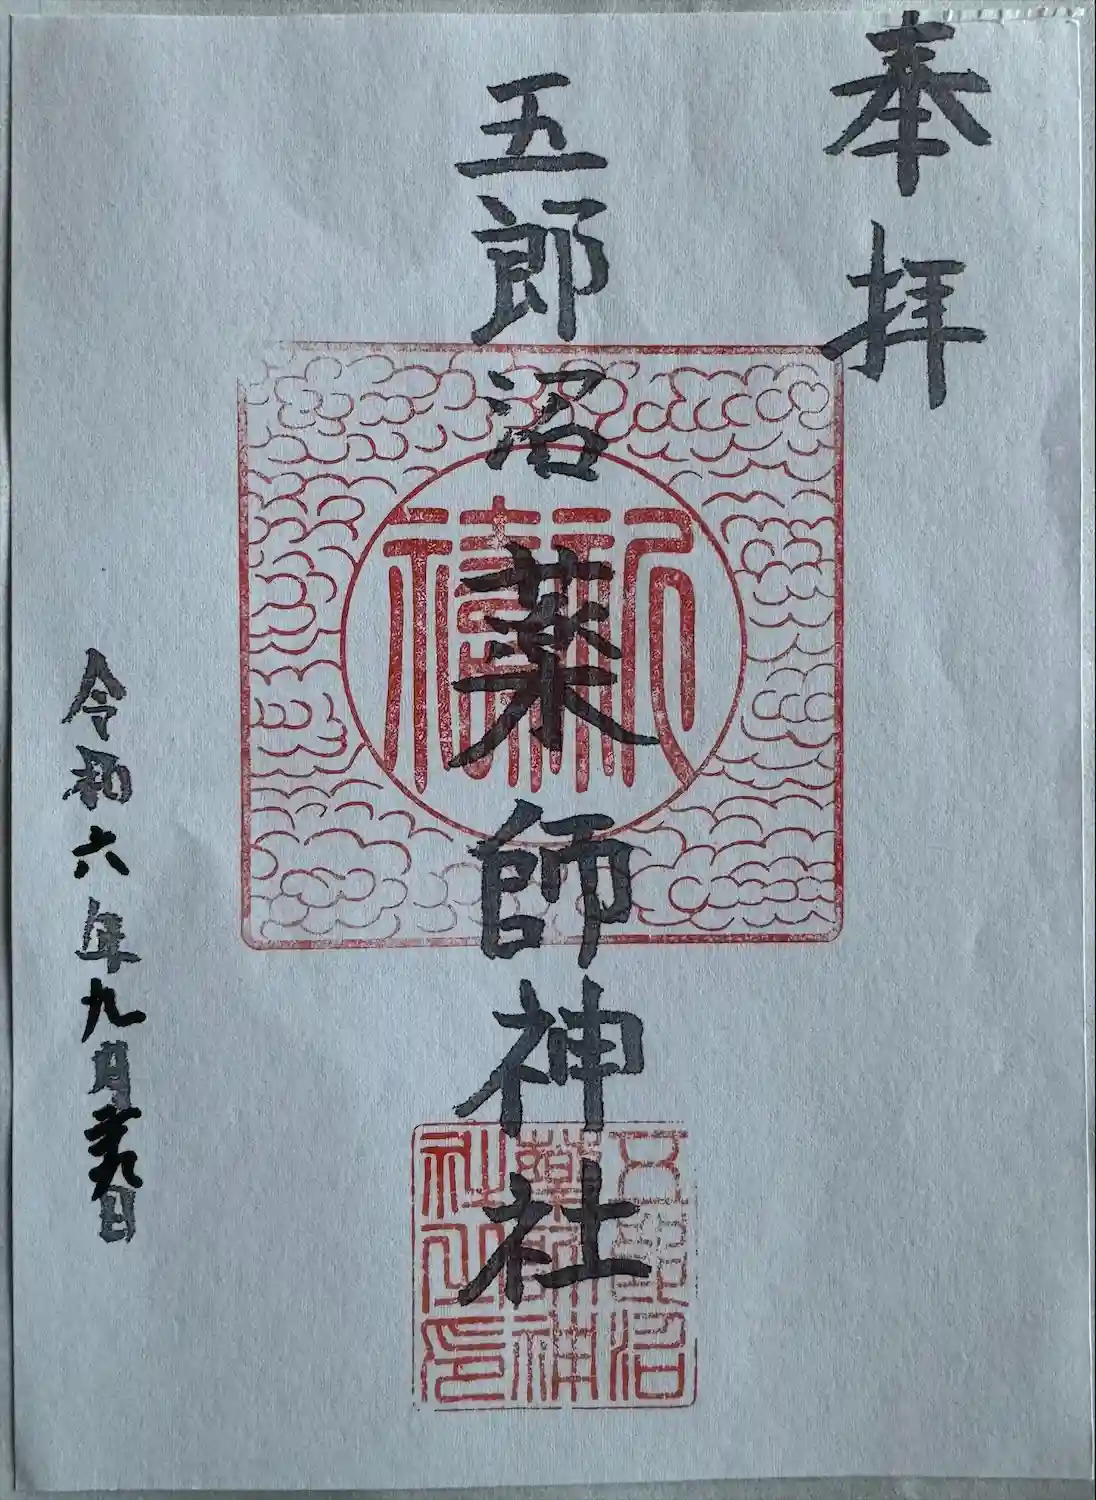 奉拝
五郎沼薬師神社
五郎沼
薬師神
社之印
令和六年九月二十九日